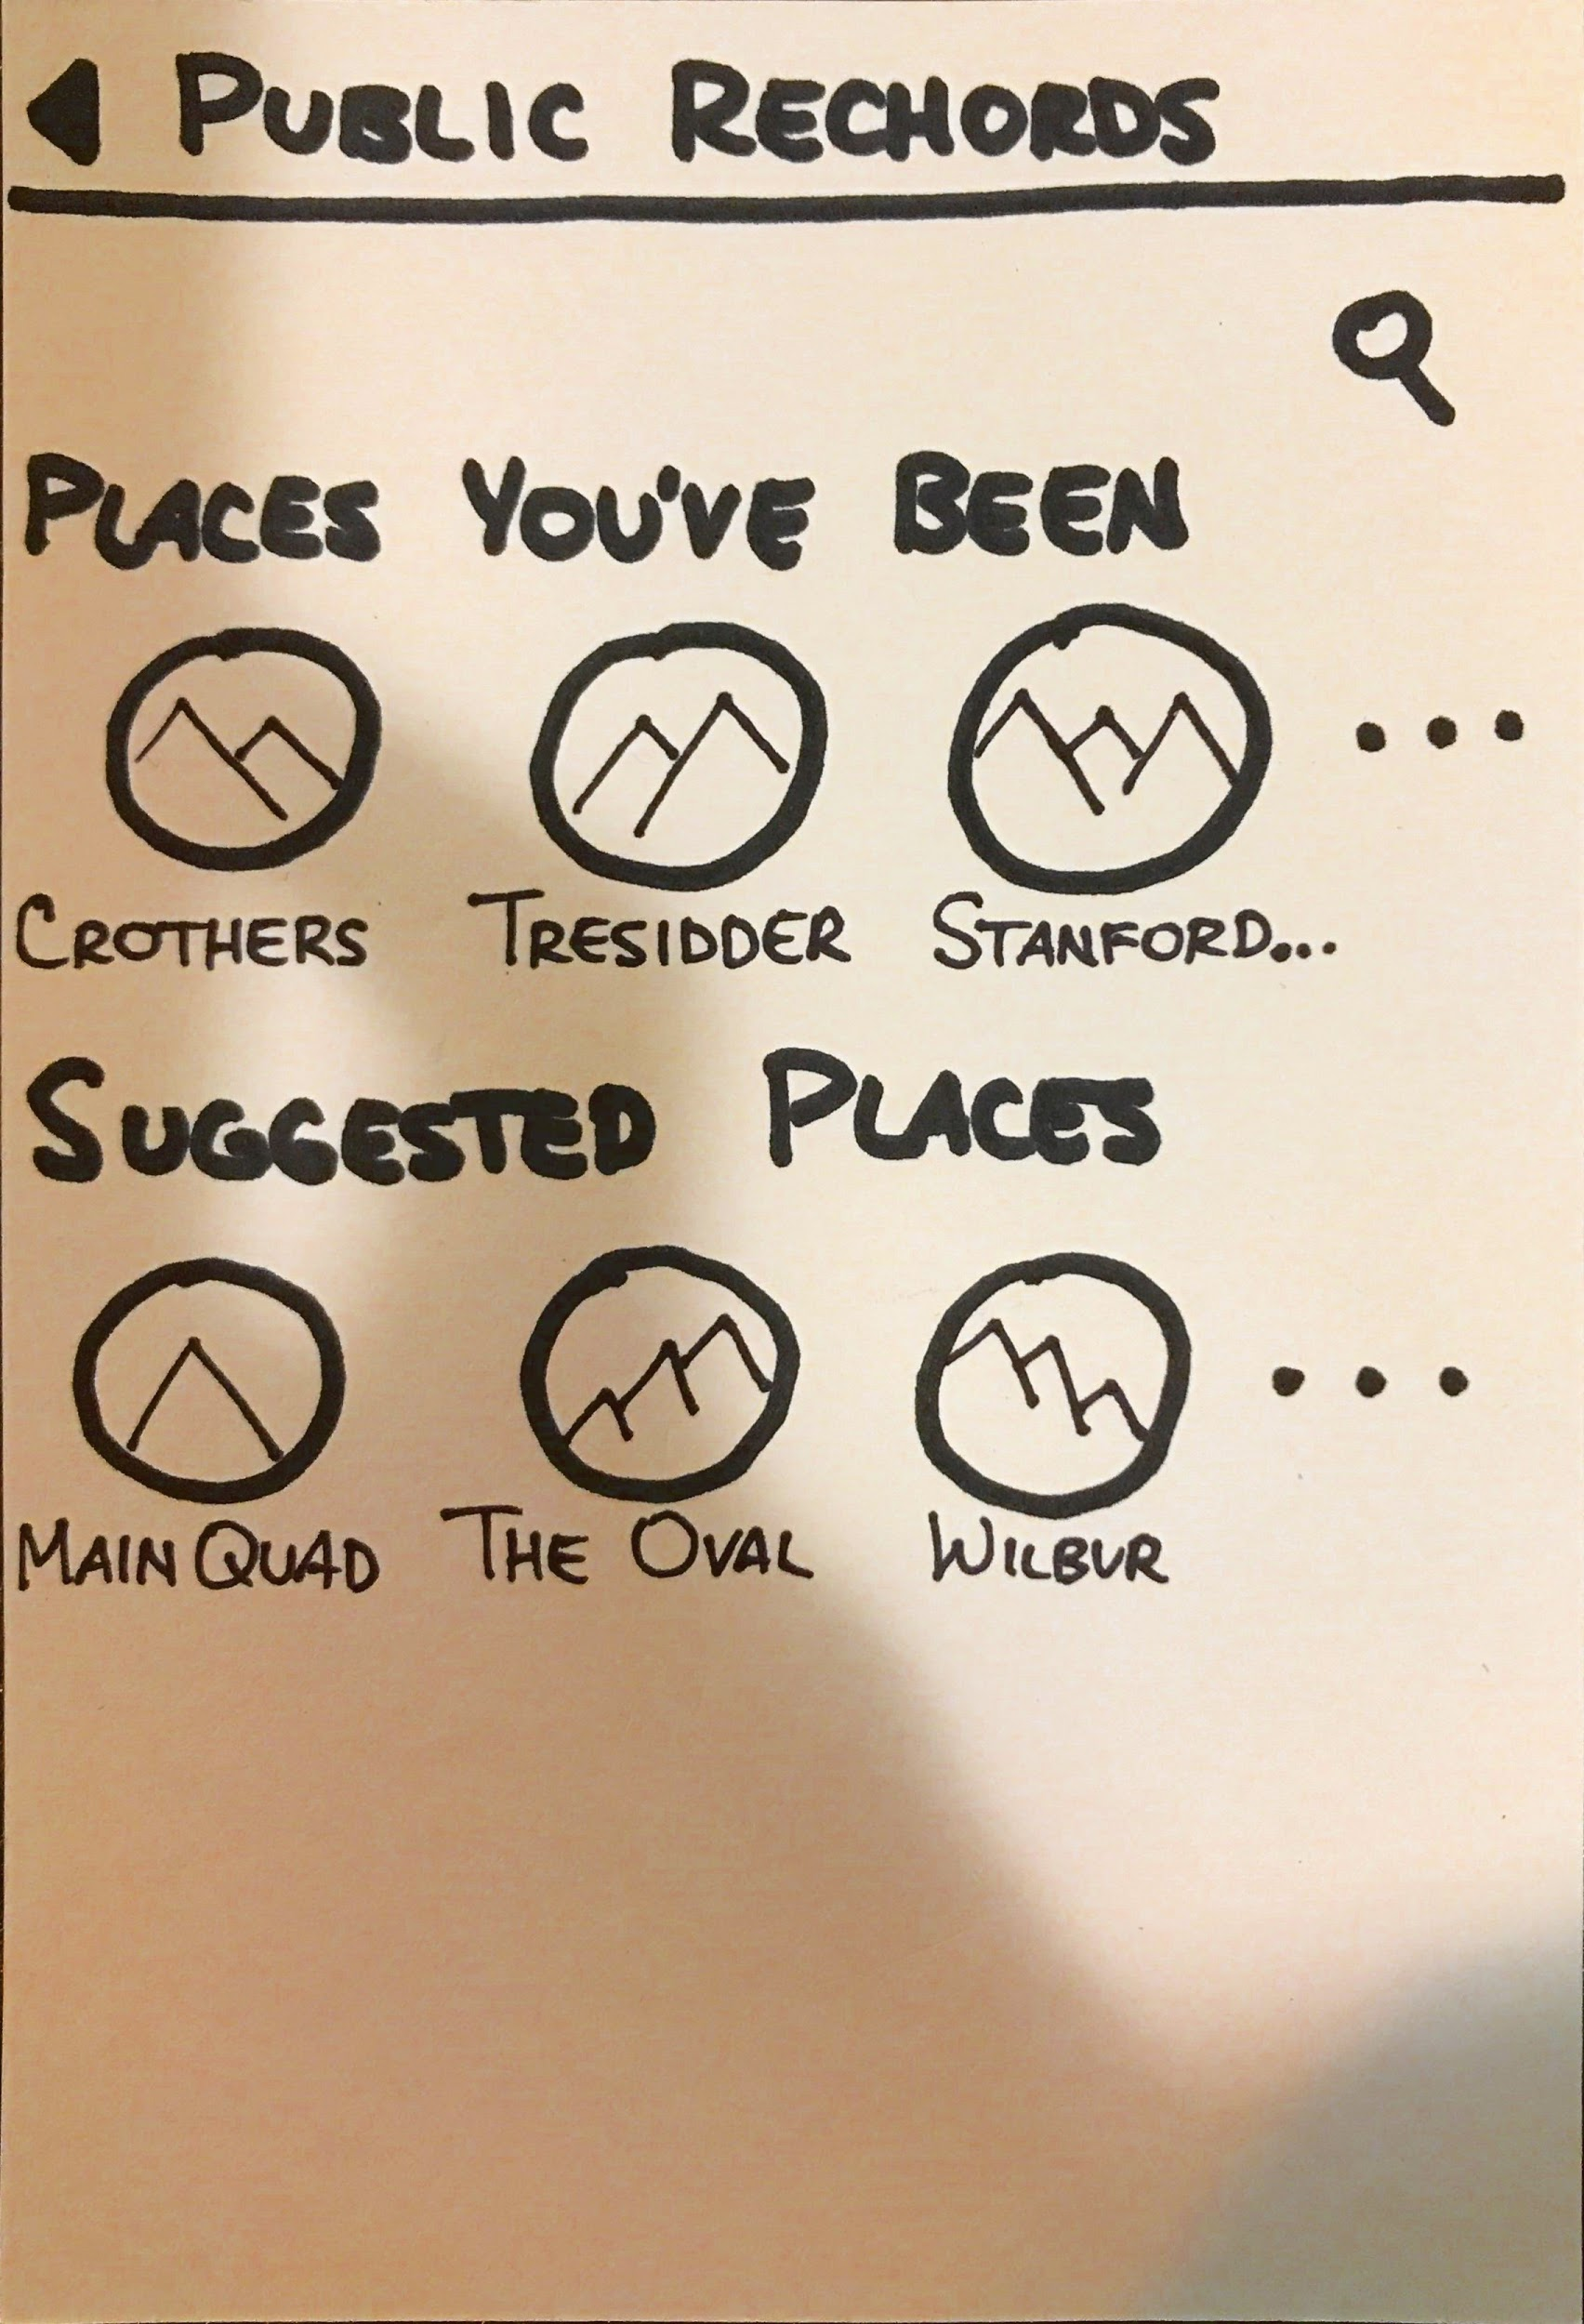 PUBLIC RECHORDS
PLACES YOU'VE BEEN
CROTHERS TRESIDDER STANFORD...
SUGGESTED PLACES
MAIN QUAD THE OVAL WILBUR